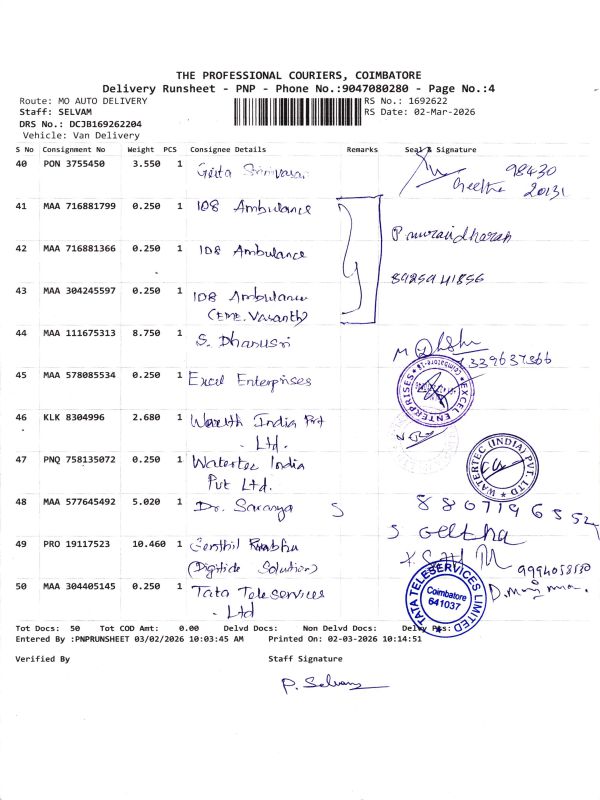 THE PROFESSIONAL COURIERS, COIMBATORE
Delivery Runsheet - PNP - Phone No.:9047080280 - Page No.:4
Route: MO AUTO DELIVERY RS No.: 1692622
Staff: SELVAM RS Date: 02-Mar-2026
DRS No.: DCJB169262204
Vehicle: Van Delivery
S No Consignment No Weight PCS Consignee Details Remarks Seal & Signature
40 PON 3755450 3.550 1 Geeta Srinivasan 98430
Geetha 20131
41 MAA 716881799 0.250 1 108 Ambulance
P muraidharan
42 MAA 716881366 0.250 1 108 Ambulance
8925941856
43 MAA 304245597 0.250 1 108 Ambulance
(EME. Vasanth)
44 MAA 111675313 8.750 1 S. Dhanusri
45 MAA 578085534 0.250 1 Excel Enterprises
EXCEL ENTERPRISES
46 KLK 8304996 2.680 1 India Pvt
- Ltd.
47 PNQ 758135072 0.250 1 Watertec India
Pvt Ltd.
WATERTEC (INDIA) PVT. LTD
48 MAA 577645492 5.020 1 Dr. Saranya S
S Geetha
49 PRO 19117523 10.460 1 Senthil Prabhu
(Digitide Solution)
50 MAA 304405145 0.250 1 Tata Teleservices
- Ltd
TATA TELESERVICES LIMITED
Coimbatore
641037
Tot Docs: 50 Tot COD Amt: 0.00 Delvd Docs: Non Delvd Docs: Delvy Pss:
Entered By :PNPRUNSHEET 03/02/2026 10:03:45 AM Printed On: 02-03-2026 10:14:51
Verified By Staff Signature
P. Selvam